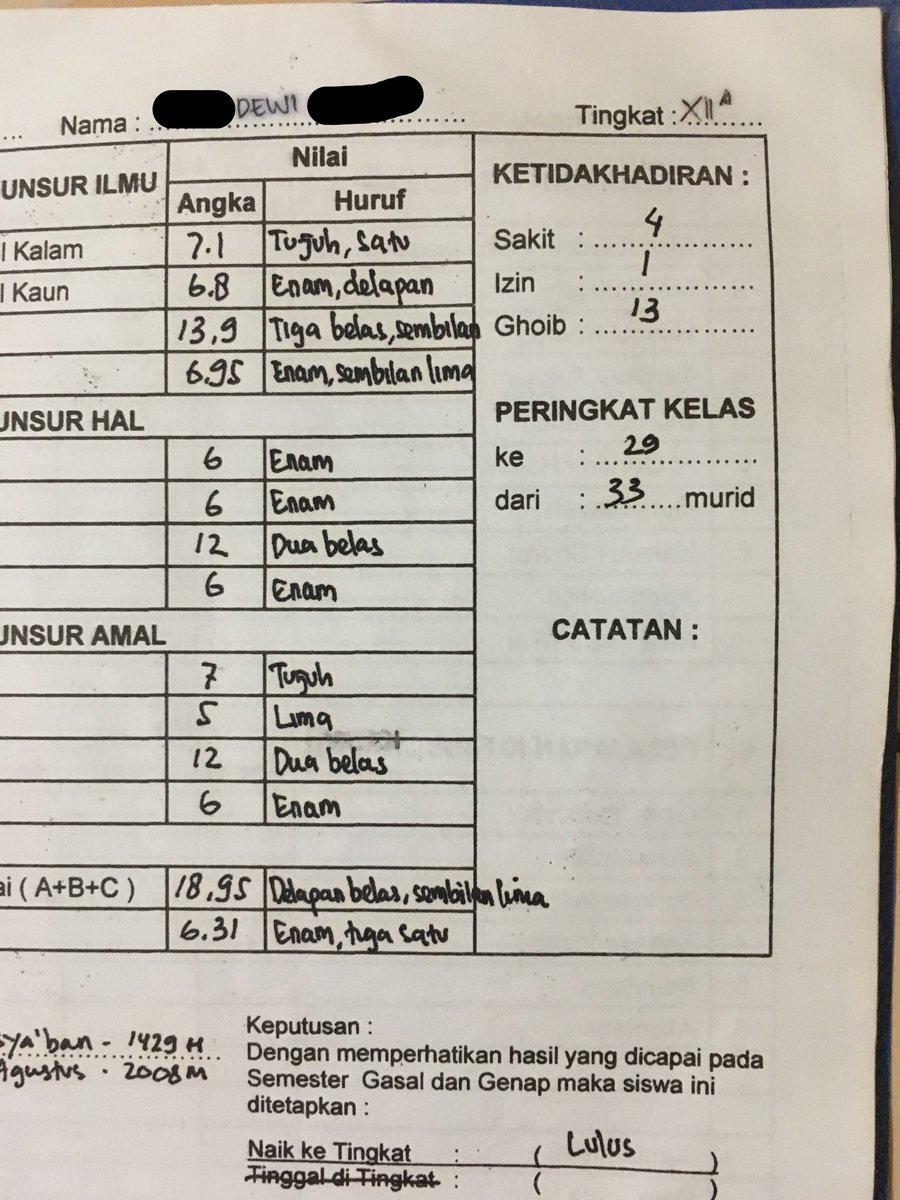 Nama : DEWI Tingkat : XII A
UNSUR ILMU Nilai KETIDAKHADIRAN :
Angka Huruf
l Kalam 7.1 Tujuh, Satu Sakit : 4
l Kaun 6.8 Enam, delapan Izin : 1
13,9 Tiga belas, sembilan Ghoib : 13
6.95 Enam, sembilan lima
UNSUR HAL PERINGKAT KELAS
6 Enam ke : 29
6 Enam dari : 33 murid
12 Dua belas
6 Enam
UNSUR AMAL CATATAN :
7 Tujuh
5 Lima
12 Dua belas
6 Enam
ai ( A+B+C ) 18,95 Delapan belas, sembilan lima
6.31 Enam, tiga satu
sya'ban - 1429 H
Agustus - 2008 M
Keputusan :
Dengan memperhatikan hasil yang dicapai pada
Semester Gasal dan Genap maka siswa ini
ditetapkan :
Naik ke Tingkat : ( Lulus )
Tinggal di Tingkat : ( )